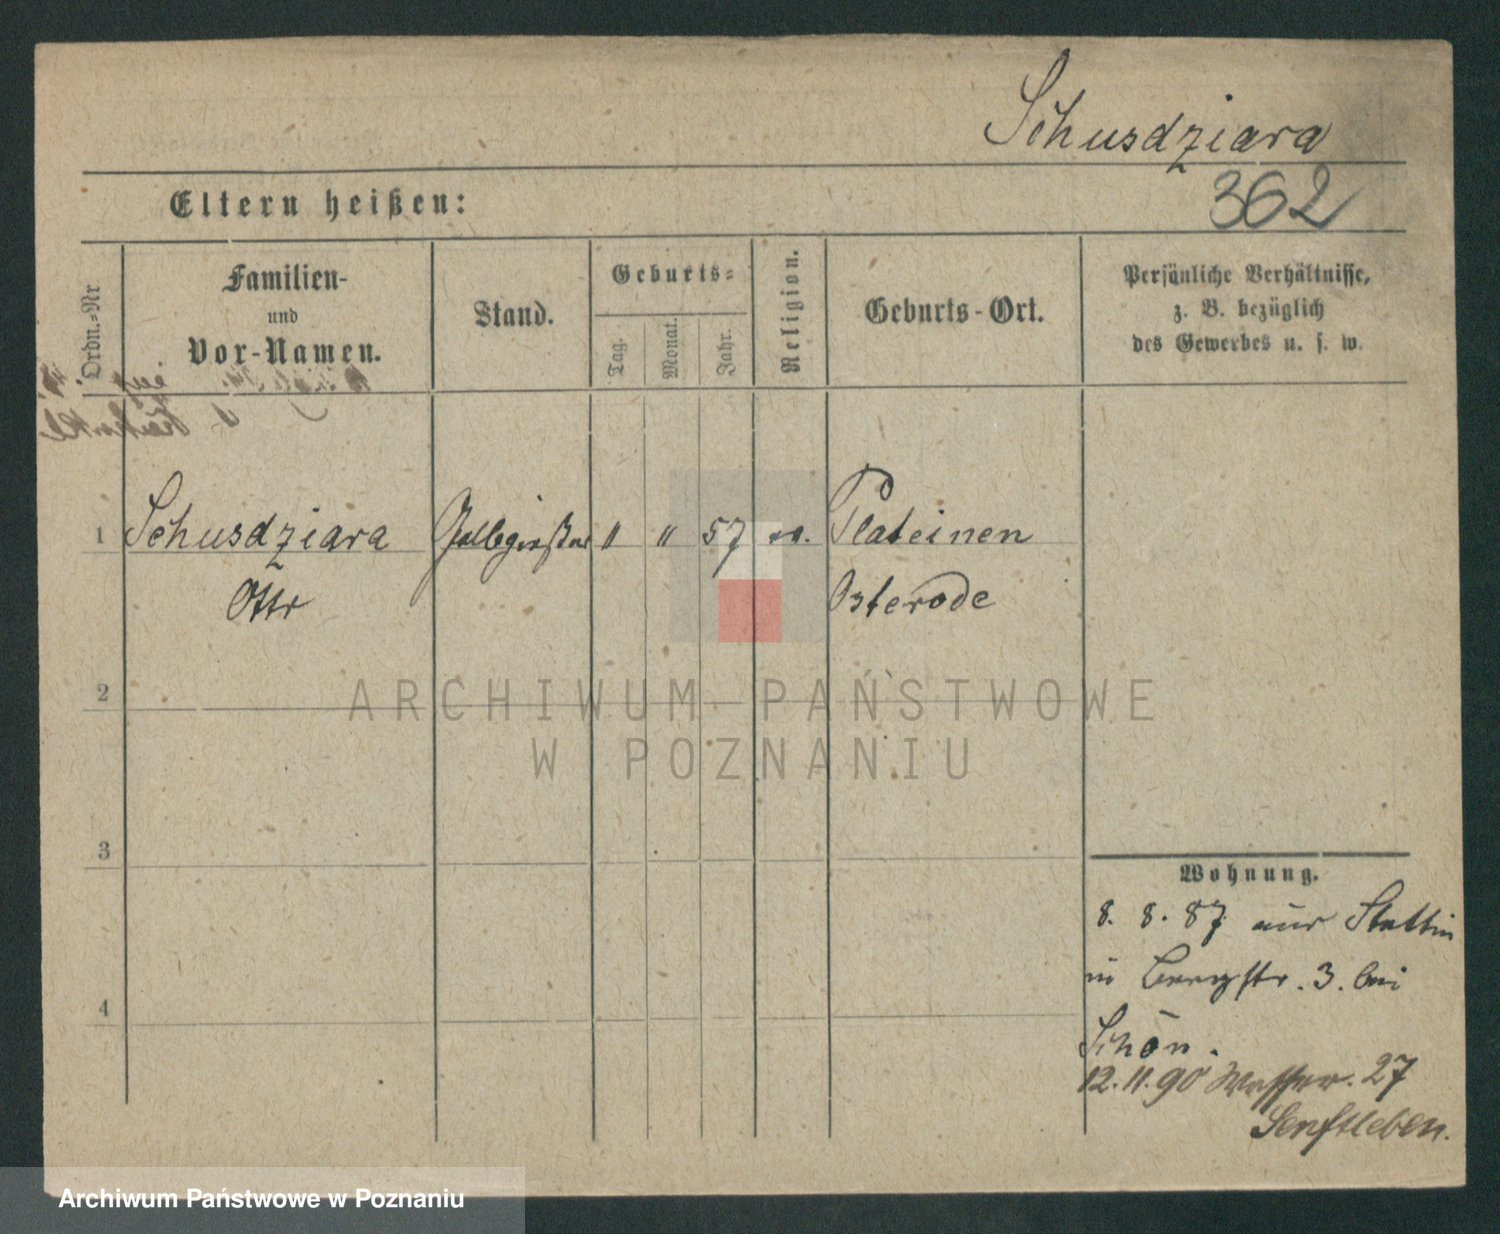 Schusdziara
Eltern heißen:
362
Ordn.-Nr
Familien-
und
Vor-Namen.
Stand.
Geburts-
Tag.
Monat.
Jahr.
Religion.
Geburts-Ort.
Persönliche Verhältnisse,
z. B. bezüglich
des Gewerbes u. s. w.
1 Schusdziara Gelbgießer " " 57 ev. Plateinen
Otto Osterode
2
3
4
Wohnung.
8. 8. 87 aus Stettin
in Bergstr. 3. bei
Schön.
12.11.90 Wasser. 27
Senftleben.
ARCHIWUM PAŃSTWOWE
W POZNANIU
Archiwum Państwowe w Poznaniu